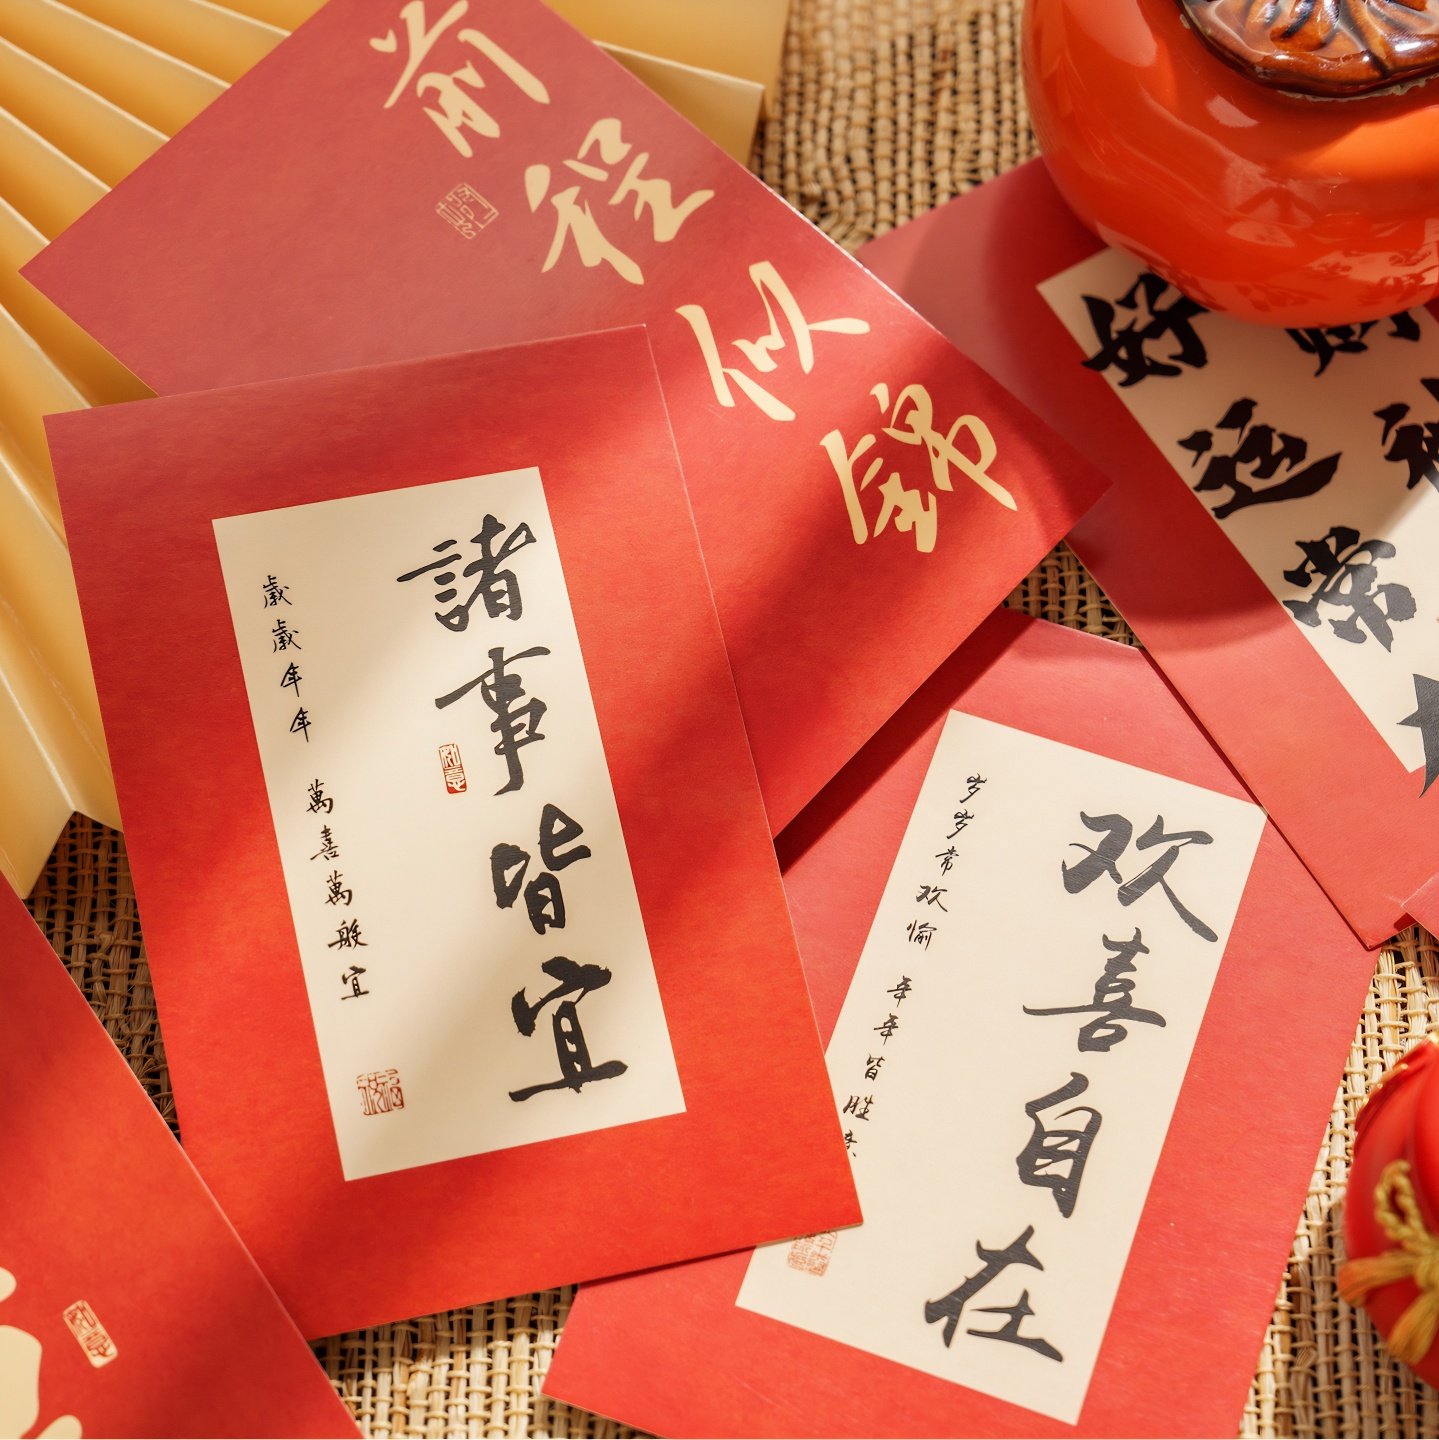 前程似锦
諸事皆宜
如意
歲歲年年 萬喜萬般宜
欢喜自在
岁岁常欢愉 年年皆胜意
好运常
如意